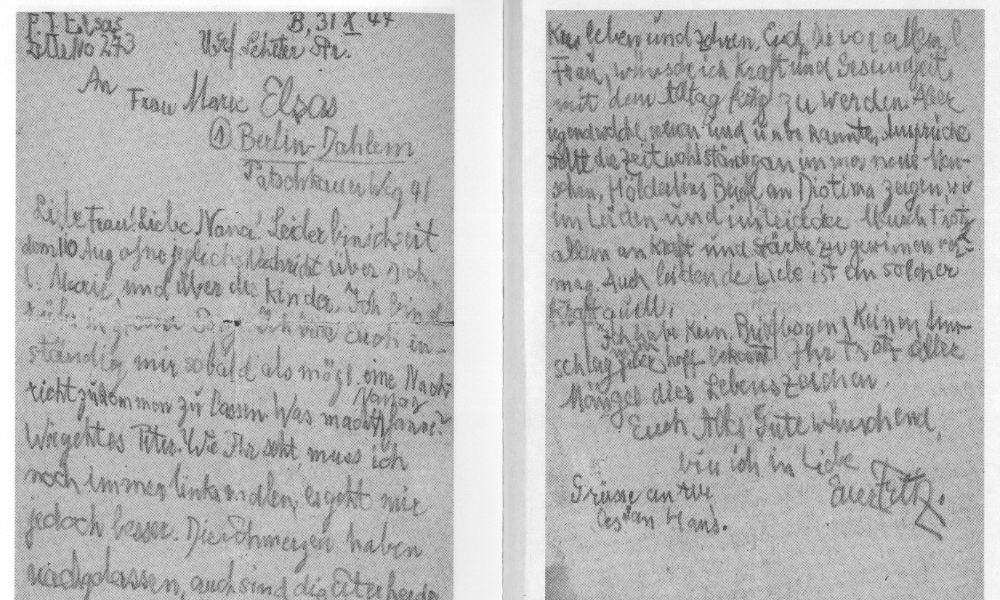 F. J. Elsas
Zelle No 273
B, 31 X 44
Lehrter Str.
An
Frau Marie Elsas
① Berlin-Dahlem
Patschkauer Weg 41
Liebe Frau! Liebe Leider bin ich seit
dem 10 Aug ohne jegliche Nachricht über Dich,
l. Marie, und über die Kinder. Ich bin
in grosser Sorge. Ich bitte Euch in-
ständig mir sobald als mögl. eine Nach-
richt zukommen zu lassen. Was macht Hanne?
Wie geht es Peter. Wie Ihr seht, muss ich
noch immer links malen, es geht mir
jedoch besser. Die Schmerzen haben
nachgelassen, auch sind die Eiterherde
leben und zehren. Euch, Dir vor allem l.
Frau, wünsche ich Kraft und Gesundheit,
mit dem Alltag fertig zu werden. Aber
neuen und unbekannten Ansprüche
stellt die Zeit wohl ständig an immer neue Men-
schen, Hölderlins Briefe an Diotima zeigen, wie
im Leiden und im Mensch trotz
allem an Kraft und Stärke zu gewinnen ver-
mag. Auch leidende Liebe ist ein solcher
Kraftquell.
Ich habe kein Briefbogen, keinen Um-
schlag, hoff. bekommt Ihr trotz aller
Mängel dies Lebenszeichen.
Euch Alles Gute wünschend,
bin ich in Liebe
Euer Fritz.
Grüsse an
an Hans.